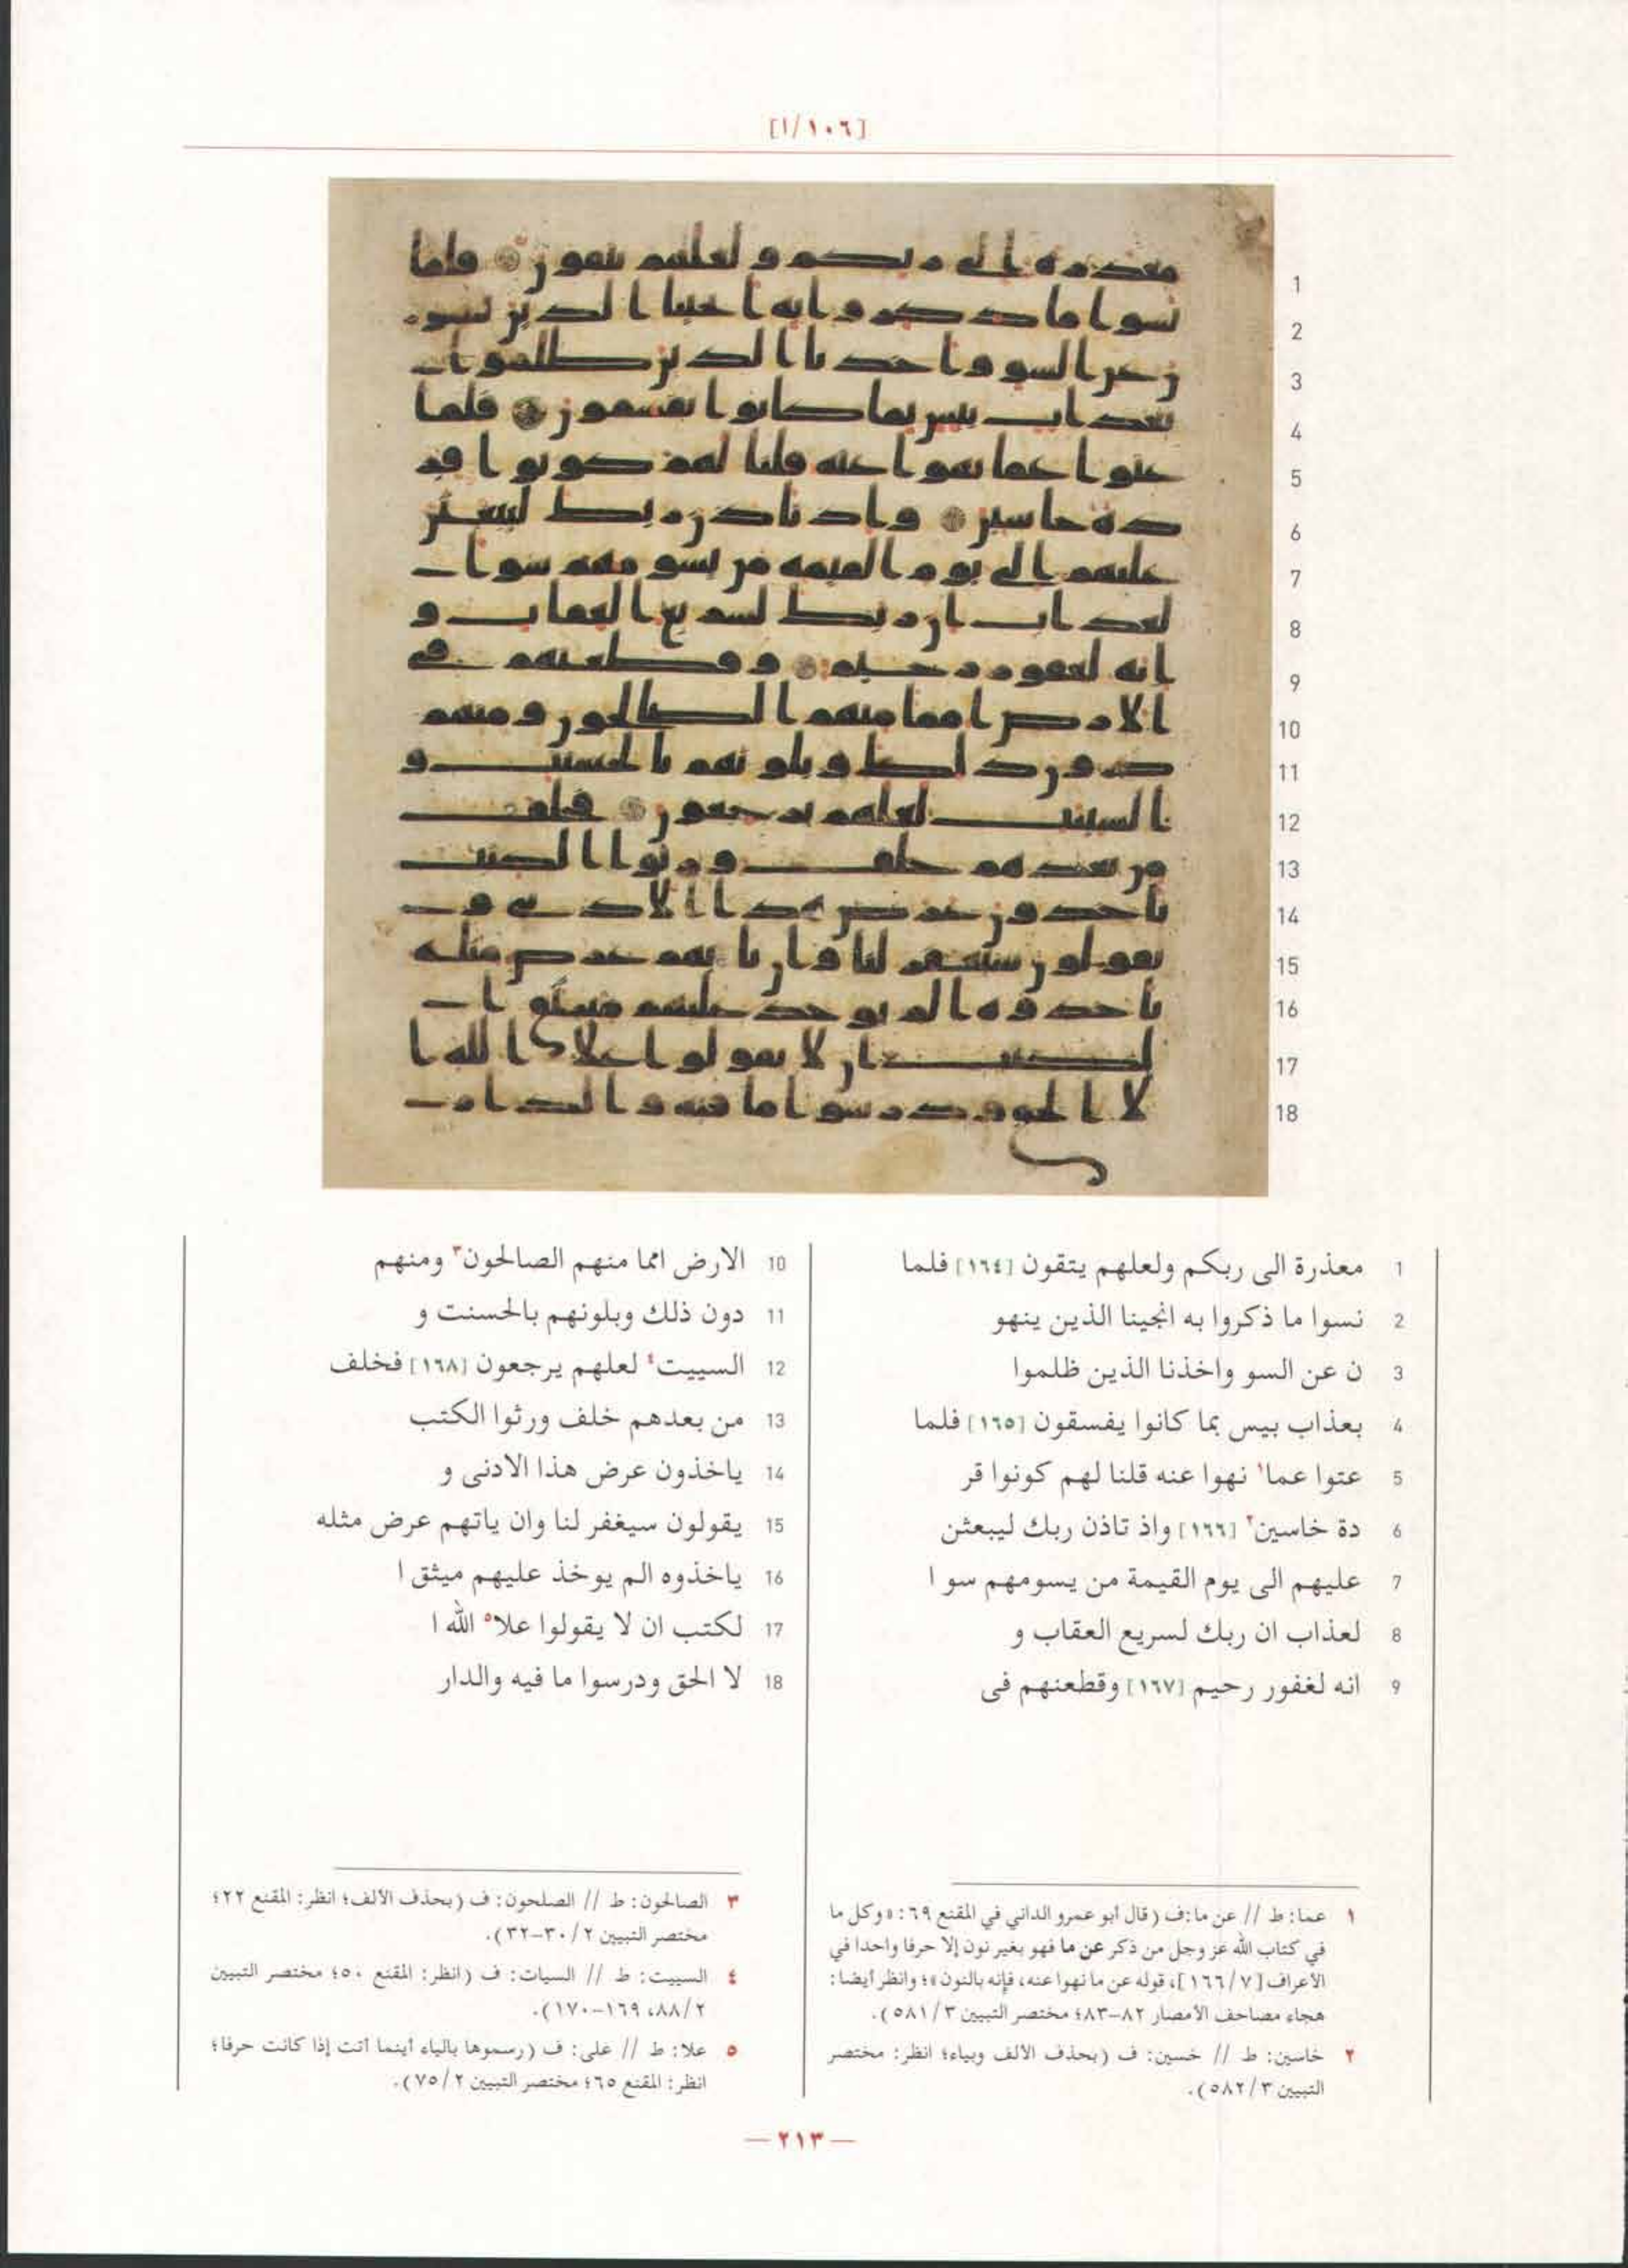 [١٠٦/ا]
1
2
3
4
5
6
7
8
9
10
11
12
13
14
15
16
17
18
1 معذرة الى ربكم ولعلهم يتقون [١٦٤] فلما
2 نسوا ما ذكروا به انجينا الذين ينهو
3 ن عن السو واخذنا الذين ظلموا
4 بعذاب بيس بما كانوا يفسقون [١٦٥] فلما
5 عتوا عما١ نهوا عنه قلنا لهم كونوا قر
6 دة خاسين٢ [١٦٦] واذ تاذن ربك ليبعثن
7 عليهم الى يوم القيمة من يسومهم سو ا
8 لعذاب ان ربك لسريع العقاب و
9 انه لغفور رحيم [١٦٧] وقطعنهم فى
10 الارض امما منهم الصالحون٣ ومنهم
11 دون ذلك وبلونهم بالحسنت و
12 السييت٤ لعلهم يرجعون [١٦٨] فخلف
13 من بعدهم خلف ورثوا الكتب
14 ياخذون عرض هذا الادنى و
15 يقولون سيغفر لنا وان ياتهم عرض مثله
16 ياخذوه الم يوخذ عليهم ميثق ا
17 لكتب ان لا يقولوا علا٥ الله ا
18 لا الحق ودرسوا ما فيه والدار
١ عما: ط // عن ما: ف (قال أبو عمرو الداني في المقنع ٦٩: «وكل ما
في كتاب الله عز وجل من ذكر عن ما فهو بغير نون إلا حرفا واحدا في
الأعراف [٧/ ١٦٦]، قوله عن ما نهوا عنه، فإنه بالنون»؛ وانظر أيضا:
هجاء مصاحف الأمصار ٨٢-٨٣؛ مختصر التبيين ٣/ ٥٨١).
٢ خاسين: ط // خسين: ف (بحذف الألف وبياء؛ انظر: مختصر
التبيين ٣/ ٥٨٢).
٣ الصالحون: ط // الصلحون: ف (بحذف الألف؛ انظر: المقنع ٢٢؛
مختصر التبيين ٢/ ٣٠-٣٢).
٤ السييت: ط // السيات: ف (انظر: المقنع ٥٠؛ مختصر التبيين
٢/ ٨٨، ١٦٩-١٧٠).
٥ علا: ط // على: ف (رسموها بالياء أينما أتت إذا كانت حرفا؛
انظر: المقنع ٦٥؛ مختصر التبيين ٢/ ٧٥).
— ٢١٣ —